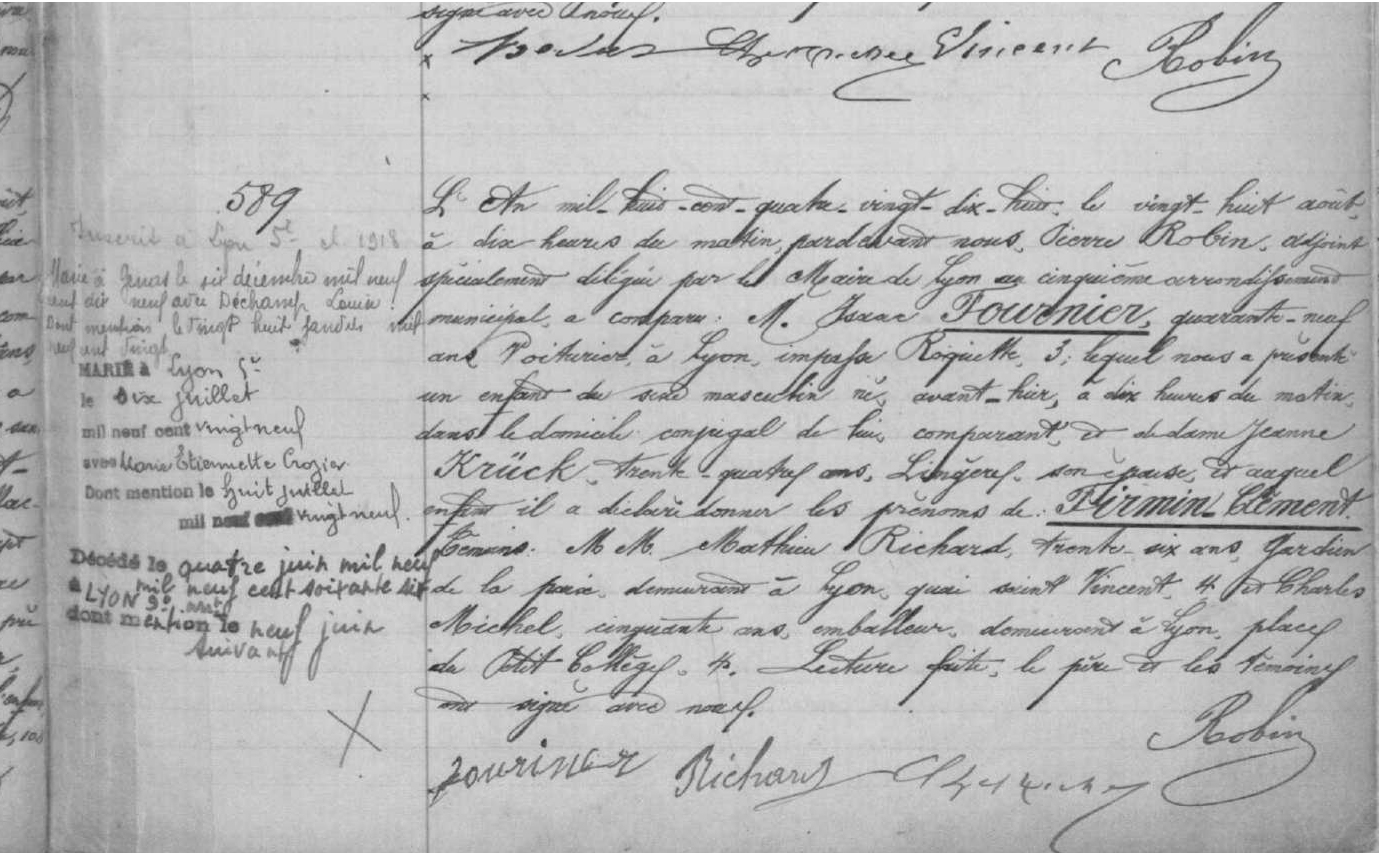 signé avec nous.
Vincent Robin
589
Inscrit à Lyon 5e el 1918
Marié à Genas le six décembre mil neuf
cent dix neuf avec Déchamp Louise
Dont mention le vingt huit janvier mil
neuf cent vingt
MARIÉ à Lyon 5e
le six juillet
mil neuf cent vingt neuf
avec Marie Etiennette Crozier
Dont mention le huit juillet
mil neuf cent vingt neuf.
Décédé le quatre juin mil neuf
mil neuf cent soixante six
à LYON 9e arrt
dont mention le neuf juin
suivant
L'An mil-huit-cent-quatre-vingt-dix-huit, le vingt-huit août,
à dix heures du matin, pardevant nous, Pierre Robin, adjoint
spécialement délégué par le Maire de Lyon au cinquième arrondissement
municipal, a comparu: M. Isaac Fournier, quarante-neuf
ans, Voiturier, à Lyon, impasse Roquette, 3; lequel nous a présenté
un enfant du sexe masculin né, avant-hier, à dix heures du matin,
dans le domicile conjugal de lui, comparant, et de dame Jeanne
Krück, trente-quatre ans, Lingère, son épouse, et auquel
enfant il a déclaré donner les prénoms de: Firmin-Clément.
Témoins: M.M. Mathieu Richard, trente-six ans, Gardien
de la paix, demeurant à Lyon, quai saint Vincent, 4 et Charles
Michel, cinquante ans, emballeur, demeurant à Lyon, place
du Petit Collège, 4. Lecture faite, le père et les témoins
ont signé avec nous.
Robin
Fournier Richard